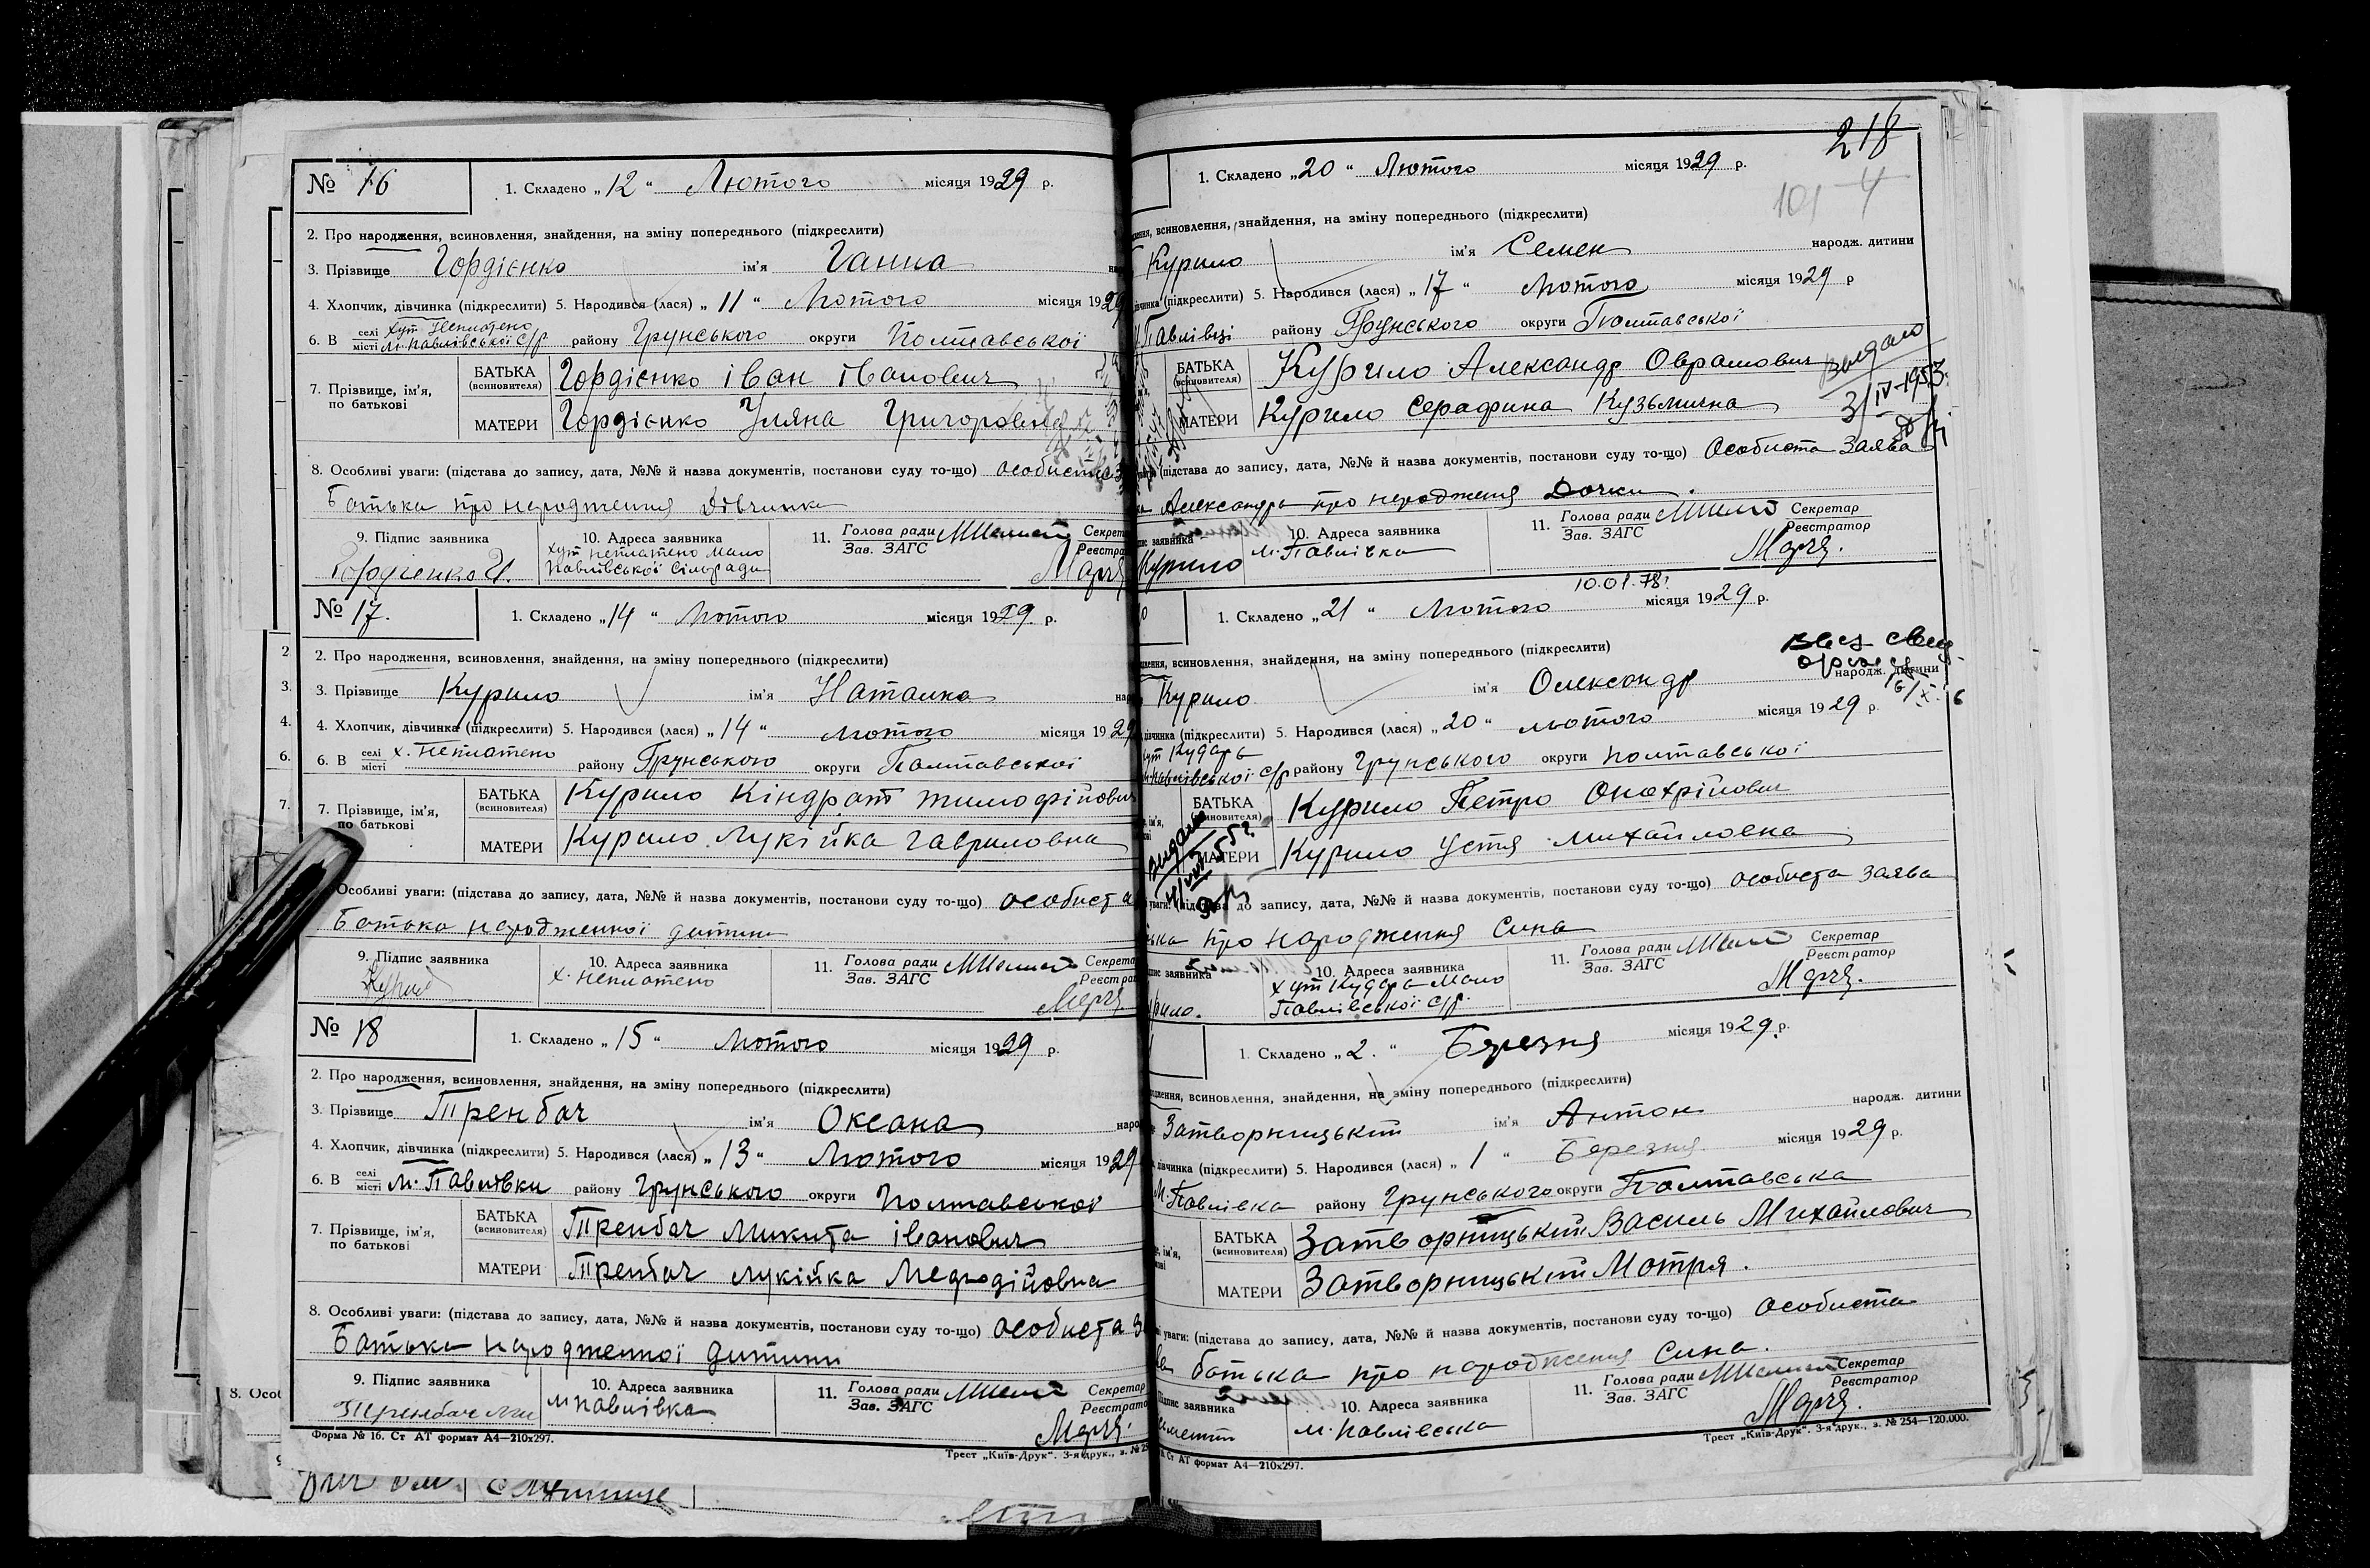 № 16
1. Складено „12“ Лютого місяця 1929 р.
2. Про народження, всиновлення, знайдення, на зміну попереднього (підкреслити)
3. Прізвище Гордієнко ім'я Ганна
4. Хлопчик, дівчинка (підкреслити) 5. Народився (лася) „11“ Лютого місяця 1929
6. В селі місті хут Неплатено М. Павлівської с/р району Грунського округи Полтавської
7. Прізвище, ім'я, по батькові
БАТЬКА (всиновителя) Гордієнко іван іванович
МАТЕРИ Гордієнко Уляна Григоровна
8. Особливі уваги: (підстава до запису, дата, №№ й назва документів, постанови суду то-що) особиста
Батька про народження Дівчинки
9. Підпис заявника 10. Адреса заявника 11. Голова ради Зав. ЗАГС
Гордієнко І. хут Неплатено Мало Павлівської сільради
№ 17.
1. Складено „14“ Лютого місяця 1929. р.
2. Про народження, всиновлення, знайдення, на зміну попереднього (підкреслити)
3. Прізвище Курило ім'я Наталка
4. Хлопчик, дівчинка (підкреслити) 5. Народився (лася) „14“ лютого місяця 1929
6. В селі місті х. Неплатено району Грунського округи Полтавської
7. Прізвище, ім'я, по батькові
БАТЬКА (всиновителя) Курило Кіндрат тимофійович
МАТЕРИ Курило Лукійка Гавриловна
Особливі уваги: (підстава до запису, дата, №№ й назва документів, постанови суду то-що) особиста
Батька народженної дитини
9. Підпис заявника 10. Адреса заявника 11. Голова ради Зав. ЗАГС
х. Неплатено
№ 18
1. Складено „15“ Лютого місяця 1929 р.
2. Про народження, всиновлення, знайдення, на зміну попереднього (підкреслити)
3. Прізвище Тренбач ім'я Оксана
4. Хлопчик, дівчинка (підкреслити) 5. Народився (лася) „13“ Лютого місяця 1929
6. В селі місті М. Павлівки району Грунського округи Полтавської
7. Прізвище, ім'я, по батькові
БАТЬКА (всиновителя) Тренбач Микита іванович
МАТЕРИ Тренбач Лукійка Мефодійовна
8. Особливі уваги: (підстава до запису, дата, №№ й назва документів, постанови суду то-що) особиста
Батька народженної дитини
9. Підпис заявника 10. Адреса заявника 11. Голова ради Зав. ЗАГС
м павлівка
Форма № 16. Ст АТ формат А4—210х297.
Трест „Київ-Друк“. 3-я друк., з. №
218
101 4
1. Складено „20“ Лютого місяця 1929 р.
всиновлення, знайдення, на зміну попереднього (підкреслити)
Курило ім'я Семен народж. дитини
(підкреслити) 5. Народився (лася) „17“ лютого місяця 1929 р
Павлівці району Грунського округи Полтавської
БАТЬКА (всиновителя) Курило Александр Оврамович
МАТЕРИ Курило Серафина Кузьмична
Видано 3/IV-1953.
(підстава до запису, дата, №№ й назва документів, постанови суду то-що) Особиста Заява
Александра про народження Дочки.
10. Адреса заявника 11. Голова ради Зав. ЗАГС Секретар Реєстратор
Курило м. Павлівка
10.01.78.
1. Складено „21“ Лютого місяця 1929 р.
всиновлення, знайдення, на зміну попереднього (підкреслити)
Курило ім'я Олександр народж. дитини
дівчинка (підкреслити) 5. Народився (лася) „20“ лютого місяця 1929 р.
хут Кударь
Павлівської с/р району Грунського округи Полтавської
БАТЬКА (всиновителя) Курило Петро Онохрійович
МАТЕРИ Курило Устя Михайловна
до запису, дата, №№ й назва документів, постанови суду то-що) особиста заява
про народження Сина
заявника 10. Адреса заявника 11. Голова ради Зав. ЗАГС Секретар Реєстратор
хут Кударь Мало Павлівської с/р.
1. Складено „2.“ Березня місяця 1929. р.
всиновлення, знайдення, на зміну попереднього (підкреслити)
Затворницький ім'я Антон народж. дитини
дівчинка (підкреслити) 5. Народився (лася) „1“ Березня місяця 1929 р.
М. Павлівка району Грунського округи Полтавська
БАТЬКА (всиновителя) Затворницький Василь Михайлович
МАТЕРИ Затворницький Мотря.
уваги: (підстава до запису, дата, №№ й назва документів, постанови суду то-що) Особиста
батька про народження Сина.
заявника 10. Адреса заявника 11. Голова ради Зав. ЗАГС Секретар Реєстратор
м. Павлівська
Ст АТ формат А4—210х297.
Трест „Київ-Друк“. 3-я друк., з. № 254—120.000.